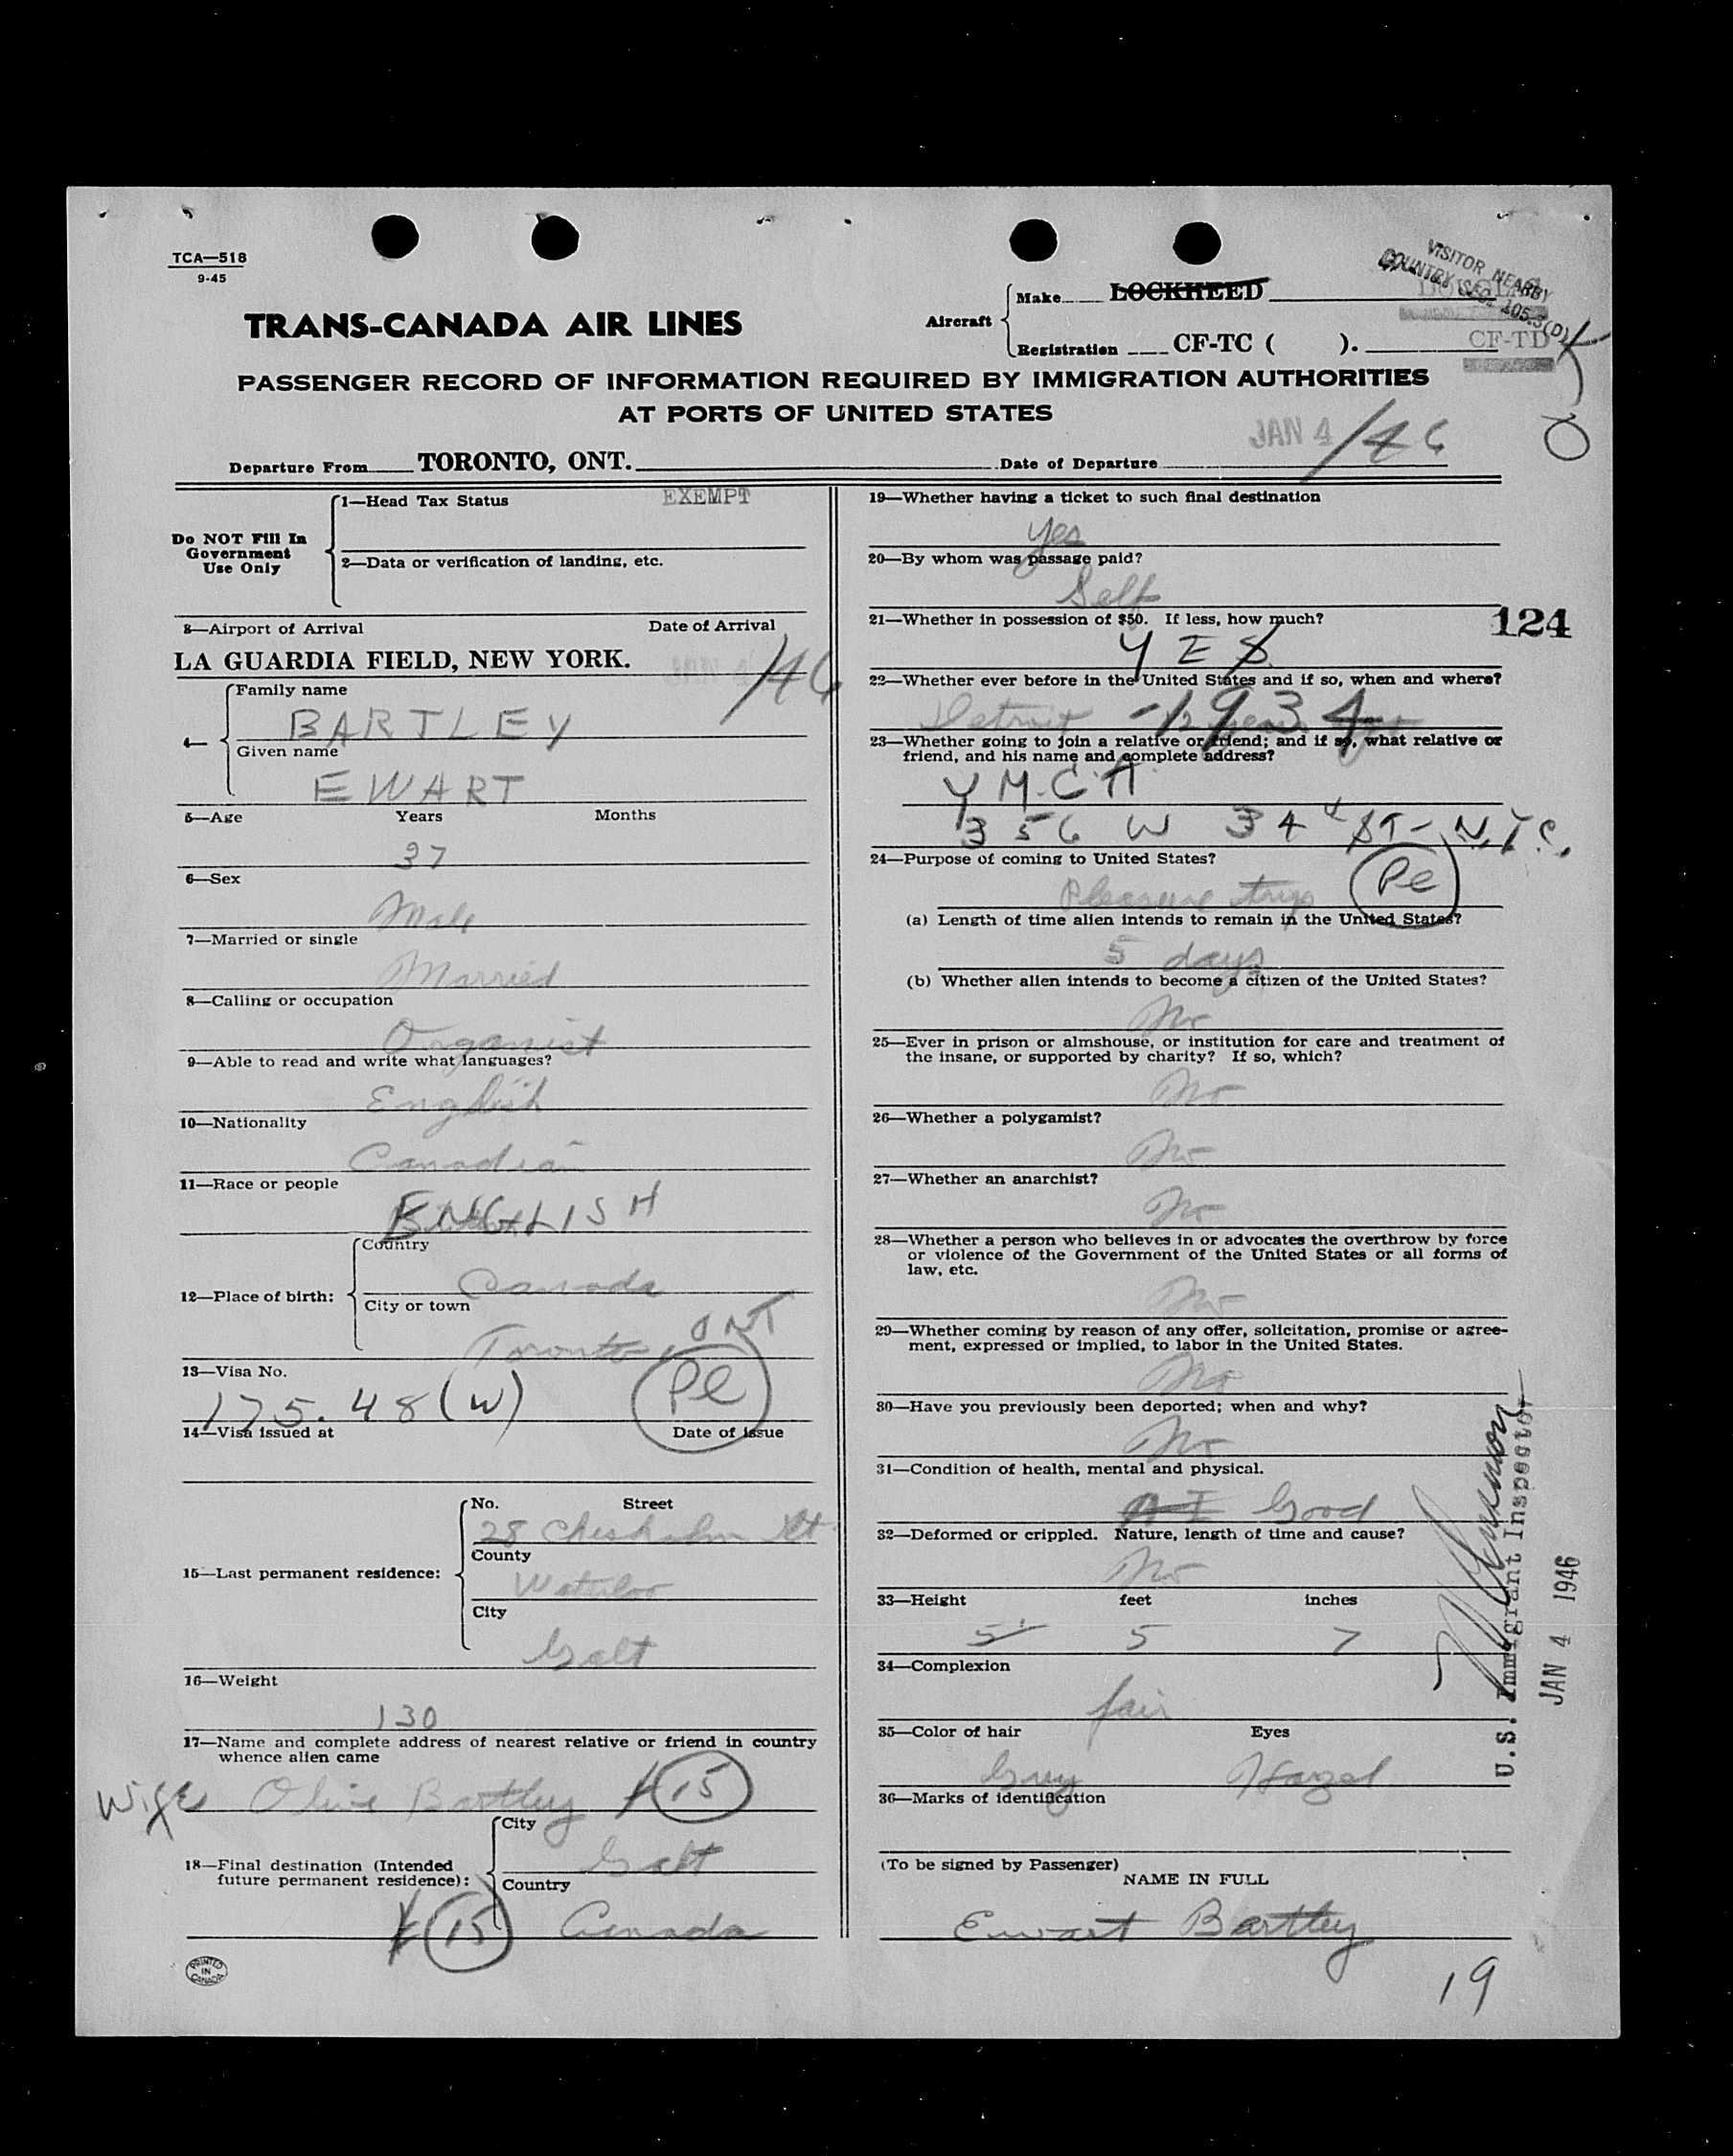 TCA—518
9-45
TRANS-CANADA AIR LINES
Aircraft
Make LOCKHEED
Registration CF-TC ( ).
VISITOR NEARBY
COUNTRY SEC. 105.3(D)
CF-TD
PASSENGER RECORD OF INFORMATION REQUIRED BY IMMIGRATION AUTHORITIES
AT PORTS OF UNITED STATES
Departure From TORONTO, ONT. Date of Departure JAN 4/46
Do NOT Fill In
Government
Use Only
1—Head Tax Status EXEMPT
2—Data or verification of landing, etc.
3—Airport of Arrival Date of Arrival
LA GUARDIA FIELD, NEW YORK. /46
4—
Family name
BARTLEY
Given name
EWART
5—Age Years Months
37
6—Sex
Male
7—Married or single
Married
8—Calling or occupation
Organist
9—Able to read and write what languages?
English
10—Nationality
Canadian
11—Race or people
ENGLISH
12—Place of birth:
Country
Canada
City or town
Toronto, ONT
13—Visa No.
175.48 (W) Pe
14—Visa issued at Date of issue
15—Last permanent residence:
No. Street
28 Chisholm St.
County
Waterloo
City
Galt
16—Weight
130
17—Name and complete address of nearest relative or friend in country
whence alien came
Wife Olive Bartley # 15
18—Final destination (Intended
future permanent residence):
City
Galt
Country
# 15 Canada
PRINTED
IN
CANADA
19—Whether having a ticket to such final destination
Yes
20—By whom was passage paid?
Self
21—Whether in possession of $50. If less, how much?
YES
124
22—Whether ever before in the United States and if so, when and where?
Detroit - 1934
23—Whether going to join a relative or friend; and if so, what relative or
friend, and his name and complete address?
Y M.C.A.
356 W 34 ST - N.Y.C.
24—Purpose of coming to United States?
Pleasure trip Pe
(a) Length of time alien intends to remain in the United States?
5 days
(b) Whether alien intends to become a citizen of the United States?
No
25—Ever in prison or almshouse, or institution for care and treatment of
the insane, or supported by charity? If so, which?
No
26—Whether a polygamist?
No
27—Whether an anarchist?
No
28—Whether a person who believes in or advocates the overthrow by force
or violence of the Government of the United States or all forms of
law, etc.
No
29—Whether coming by reason of any offer, solicitation, promise or agree-
ment, expressed or implied, to labor in the United States.
No
30—Have you previously been deported; when and why?
No
31—Condition of health, mental and physical.
A I Good
32—Deformed or crippled. Nature, length of time and cause?
No
33—Height feet inches
5' 5 7
34—Complexion
fair
35—Color of hair Eyes
Grey Hazel
36—Marks of identification
(To be signed by Passenger)
NAME IN FULL
Ewart Bartley
U.S. Immigrant Inspector
JAN 4 1946
19